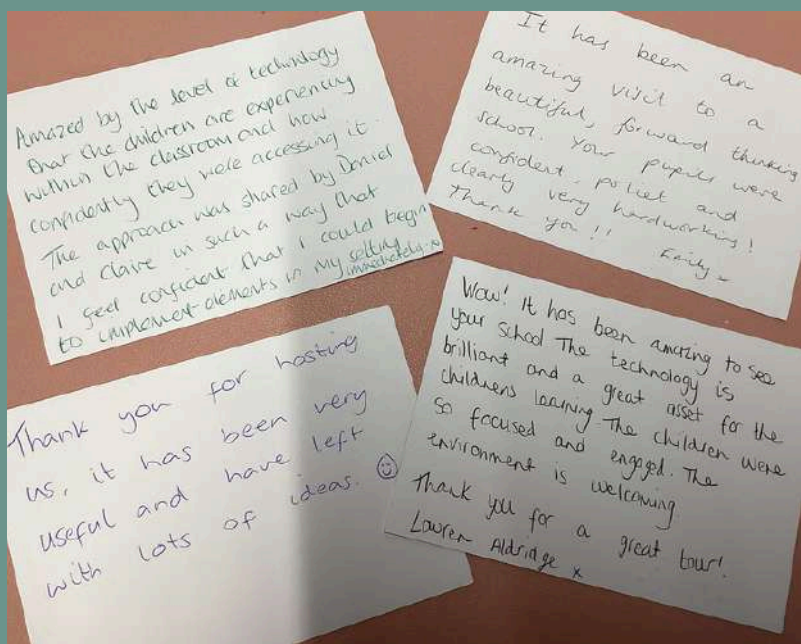 Amazed by the level of technology
that the children are experiencing
within the classroom and how
confidently they were accessing it.
The approach was shared by Daniel
and Claire in such a way that
I feel confident that I could begin
to implement elements in my setting
immediately.
It has been an
amazing visit to a
beautiful, forward thinking
school. Your pupils were
confident, poliet and
clearly very hardworking!
Thank you!!
Emily x
Thank you for hosting
us, it has been very
useful and have left
with lots of ideas. ☺
Wow! It has been amazing to see
your school The technology is
brilliant and a great asset for the
childrens learning. The children were
so focused and engaged. The
environment is welcoming
Thank you for a great tour!
Lauren Aldridge x